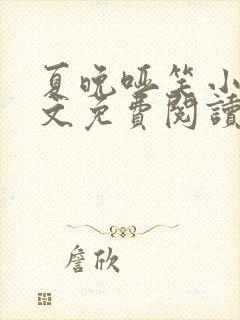 夏晚哑笑小
文免費閱讀
詹欣